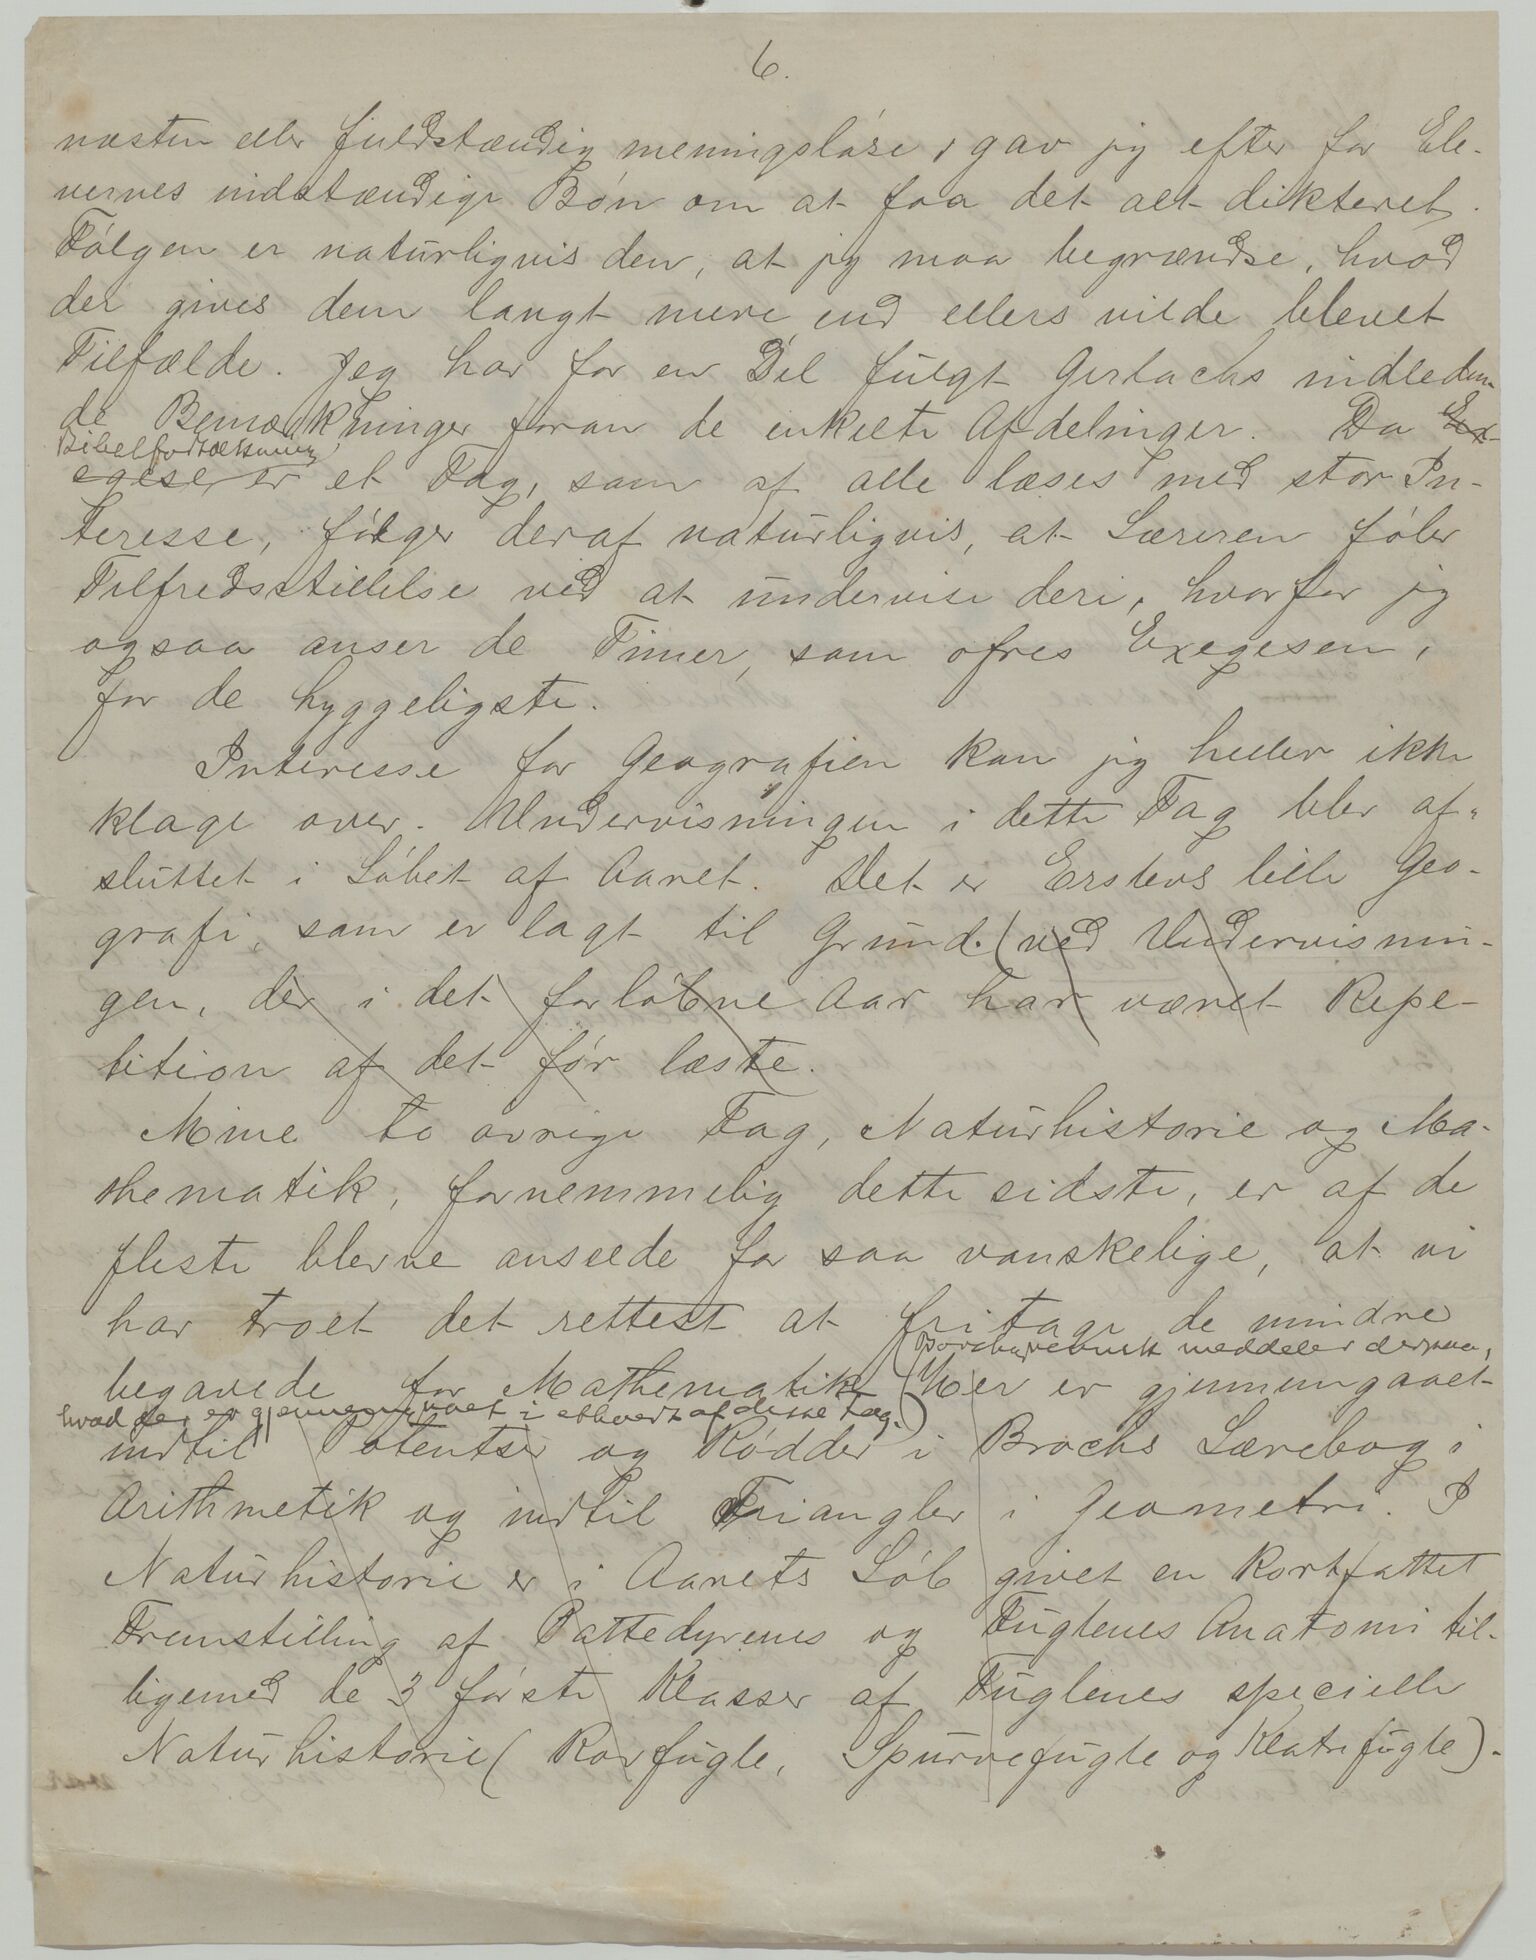 6.
næsten eller fuldstændig meningsløse, gav jeg efter for Ele-
vernes indstændige Bøn om at faa det alt dikteret.
Følgen er naturligvis den, at jeg maa begrændse, hvad
der gives dem langt mere end ellers vilde blevet
Tilfælde. Jeg har for en Del fulgt Gerlachs indleden-
de Bemærkninger foran de enkelte Afdelinger. Da Ex-
Bibelfortolkning
egese er et Fag, som af alle læses med stor In-
teresse, følger deraf naturligvis, at Læreren føler
Tilfredsstillelse ved at undervise deri, hvorfor jeg
ogsaa anser de Timer, som ofres Exegesen,
for de hyggeligste.
Interesse for Geografien kan jeg heller ikke
klage over. Undervisningen i dette Fag blev af-
sluttet i Løbet af Aaret. Det er Erslevs lille Geo-
grafi, som er lagt til Grund. (ved Undervisnin-
gen, der i det forløbne Aar har været Repe-
tition af det før læste.
Mine to øvrige Fag, Naturhistorie og Ma-
thematik, fornemmelig dette sidste, er af de
fleste Elerne anseede for saa vanskelige, at vi
har troet det rettest at fritage de mindre
meddeler derpaa,
begavede for Mathematik. (Her er gjennemgaaet
hvad der er gjennemgaaet i ethvert af disse Fag.)
indtil Potentser og Rødder i Brochs Lærebog i
Arithmetik og indtil Triangler i Geometri. I
Naturhistorie er i Aarets Løb givet en kortfattet
Fremstilling af Pattedyrenes og Fuglenes Anatomi til-
ligemed de 3 første Klasser af Fuglenes specielle
Naturhistorie (Rovfugle, Spurvefugle og Klatrefugle).